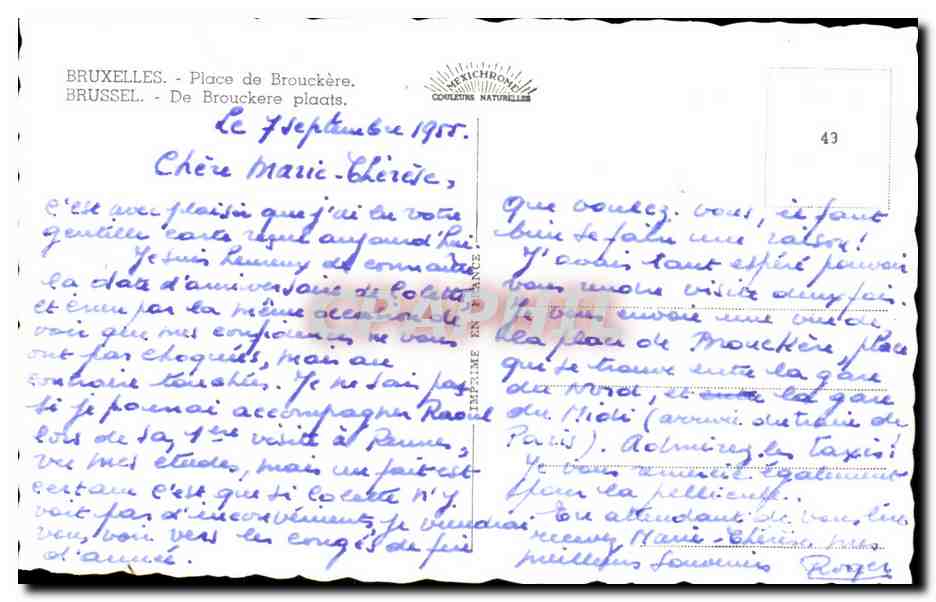 BRUXELLES. - Place de Brouckère.
BRUSSEL. - De Brouckere plaats.
MEXICHROME
COULEURS NATURELLES
43
Le 7 septembre 1955.
Chère Marie-Thérèse,
c'est avec plaisir que j'ai lu votre
gentille carte reçue aujourd'hui.
Je suis heureux de connaître
la date d'anniversaire de Colette
et ému par la même occasion de
voir que mes confidences ne vous
ont pas choquées, mais au
contraire touchées. Je ne sais pas
si je pourrai accompagner Raoul
lors de sa 1ère visite à Rennes,
vu mes études, mais un fait est
certain c'est que si Colette n'y
voit pas d'inconvénients je viendrai
vous voir vers les congés de fin
d'année.
IMPRIME EN FRANCE
CPAPHIL
Que voulez-vous, il faut
bien se faire une raison!
J'avais tant espéré pouvoir
vous rendre visite deux fois.
Je vous envoie une vue de
la place de Brouckère, place
qui se trouve entre la gare
du Nord, et la gare
du Midi (arrivée du train de
Paris). Admirez les taxis!
Je vous remercie également
pour la pellicule.
En attendant de vous lire
recevez Marie-Thérèse, mes
meilleurs souvenirs
Roger